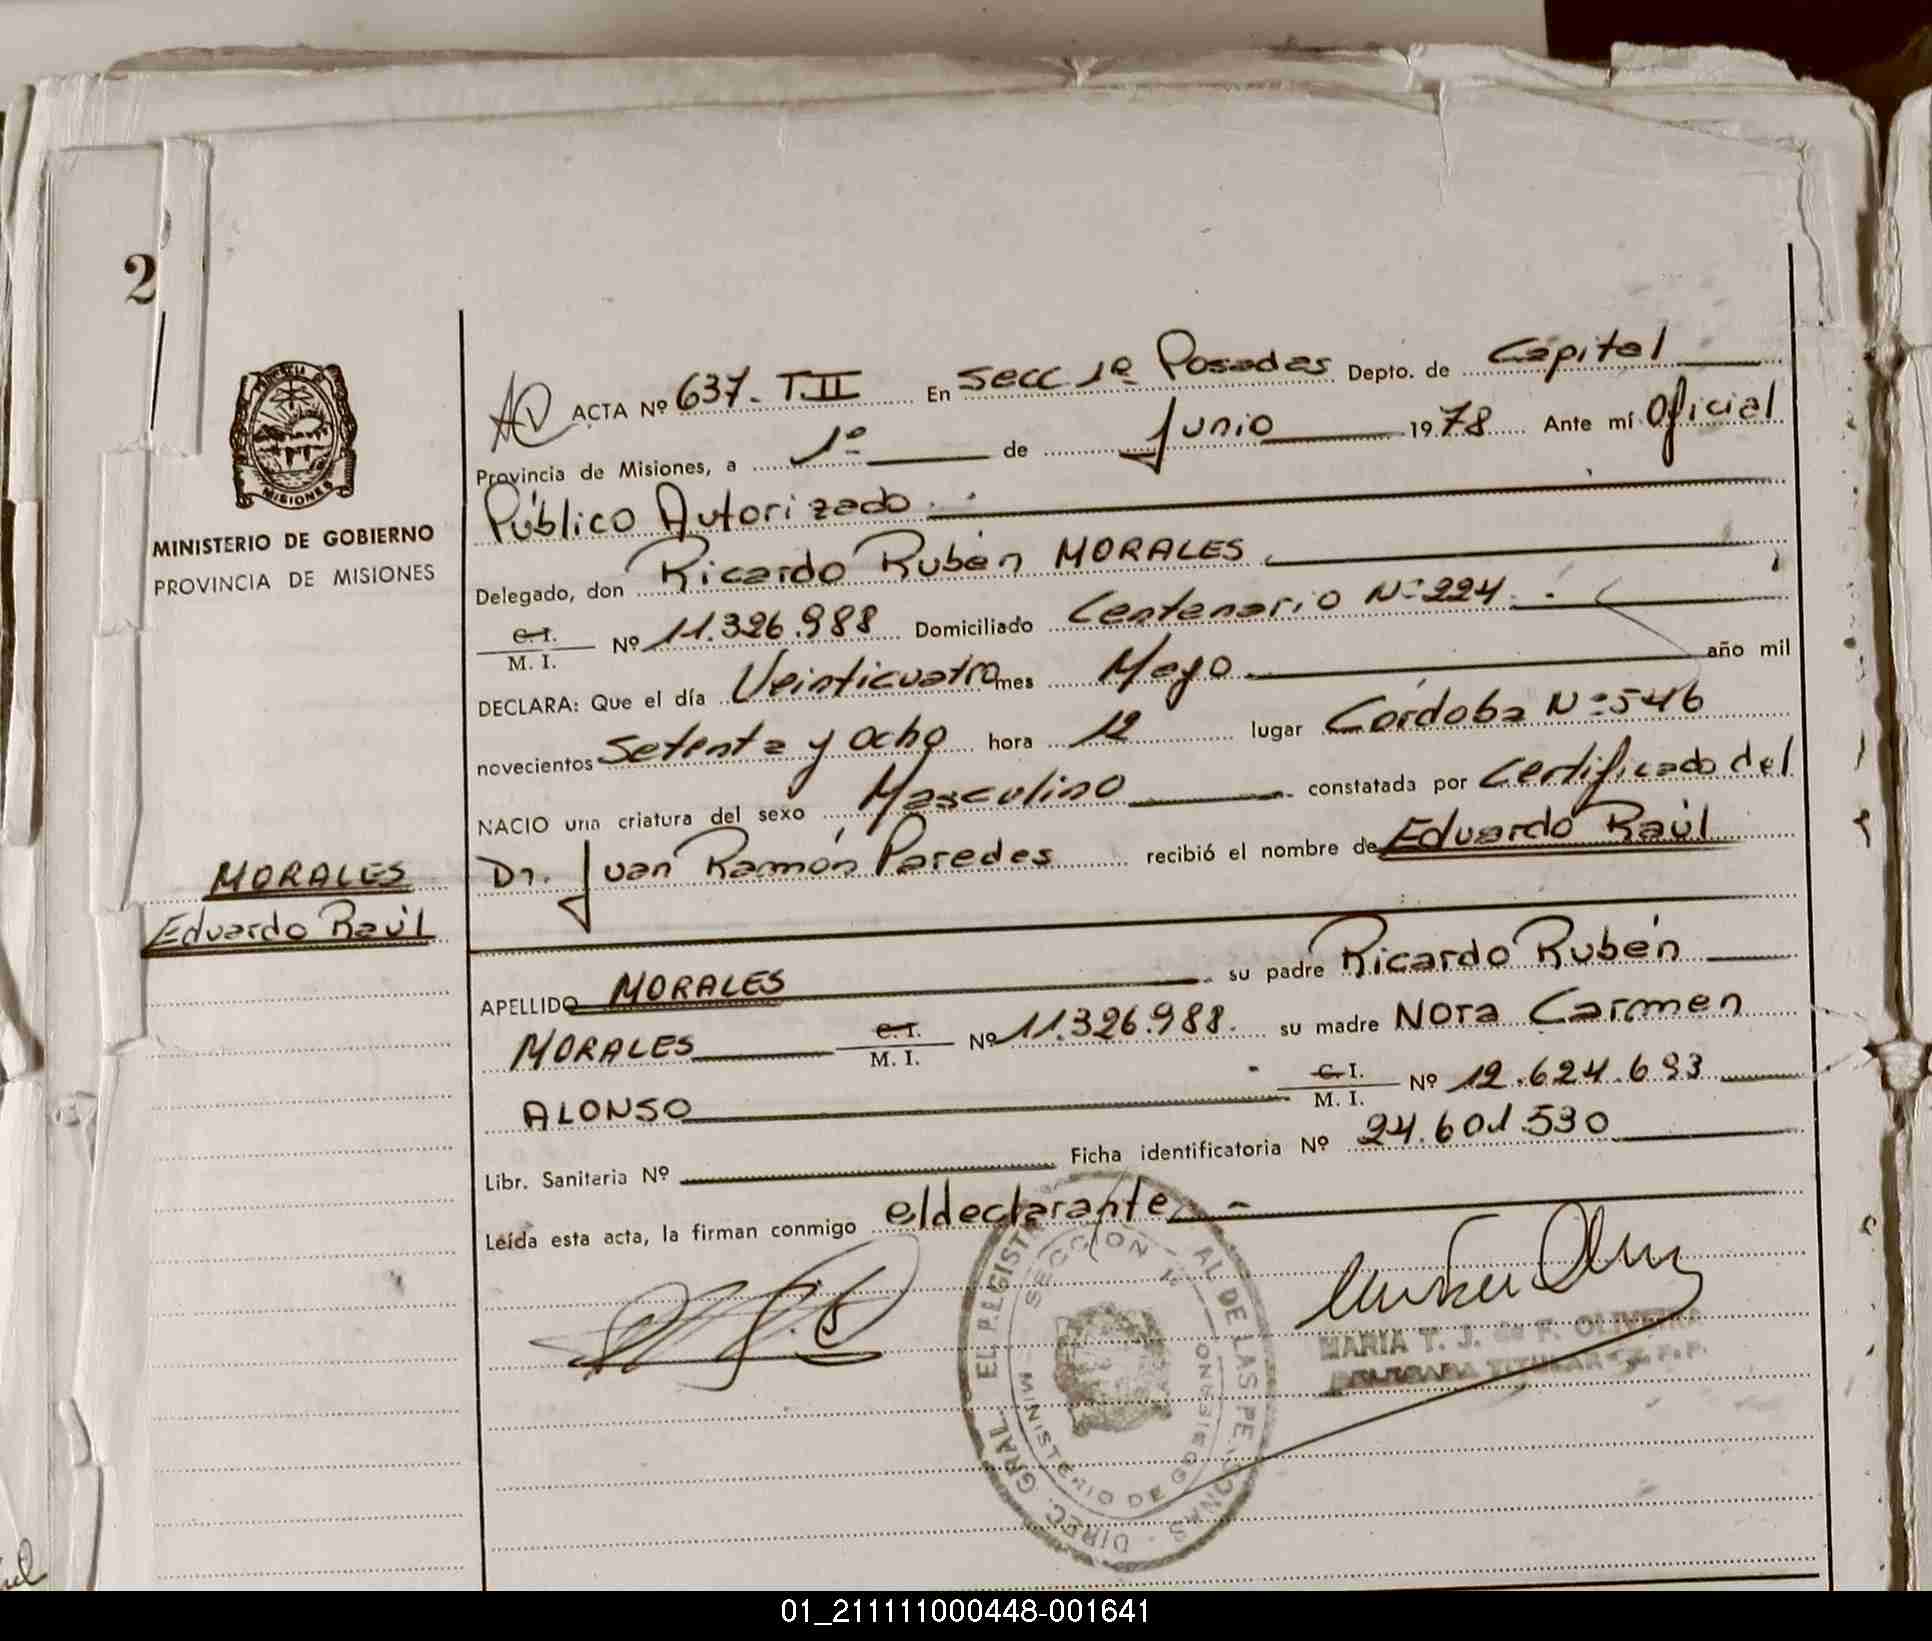 2
MISIONES
MINISTERIO DE GOBIERNO
PROVINCIA DE MISIONES
MORALES
Eduardo Raúl
ACTA Nº 637. T.II En Secc 1ª Posadas Depto. de Capital
Provincia de Misiones, a 1º de Junio 1978 Ante mí Oficial
Público Autorizado
Delegado, don Ricardo Rubén MORALES
C.I. M. I. Nº 11.326.988 Domiciliado Centenario Nº 224
DECLARA: Que el día Veinticuatro mes Mayo año mil
novecientos Setenta y Ocho hora 12 lugar Córdoba Nº 546
NACIO una criatura del sexo Masculino constatada por Certificado del
Dr. Juan Ramón Paredes recibió el nombre de Eduardo Raúl
APELLIDO MORALES su padre Ricardo Rubén
MORALES C.I. M. I. Nº 11.326.988. su madre Nora Carmen
ALONSO C.I. M. I. Nº 12.624.693
Libr. Sanitaria Nº Ficha identificatoria Nº 24.601.530
Leída esta acta, la firman conmigo el declarante
SECCION 1ª
MINISTERIO DE GOBIERNO
DIREC. GRAL. DE LAS PERSONAS
MARIA T. J. de F. OLIVEIRA
TITULAR
01_211111000448-001641